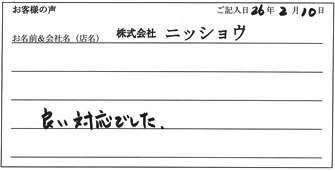 お客様の声 ご記入日26年2月10日
お名前＆会社名（店名） 株式会社 ニッショウ
良い対応でした.